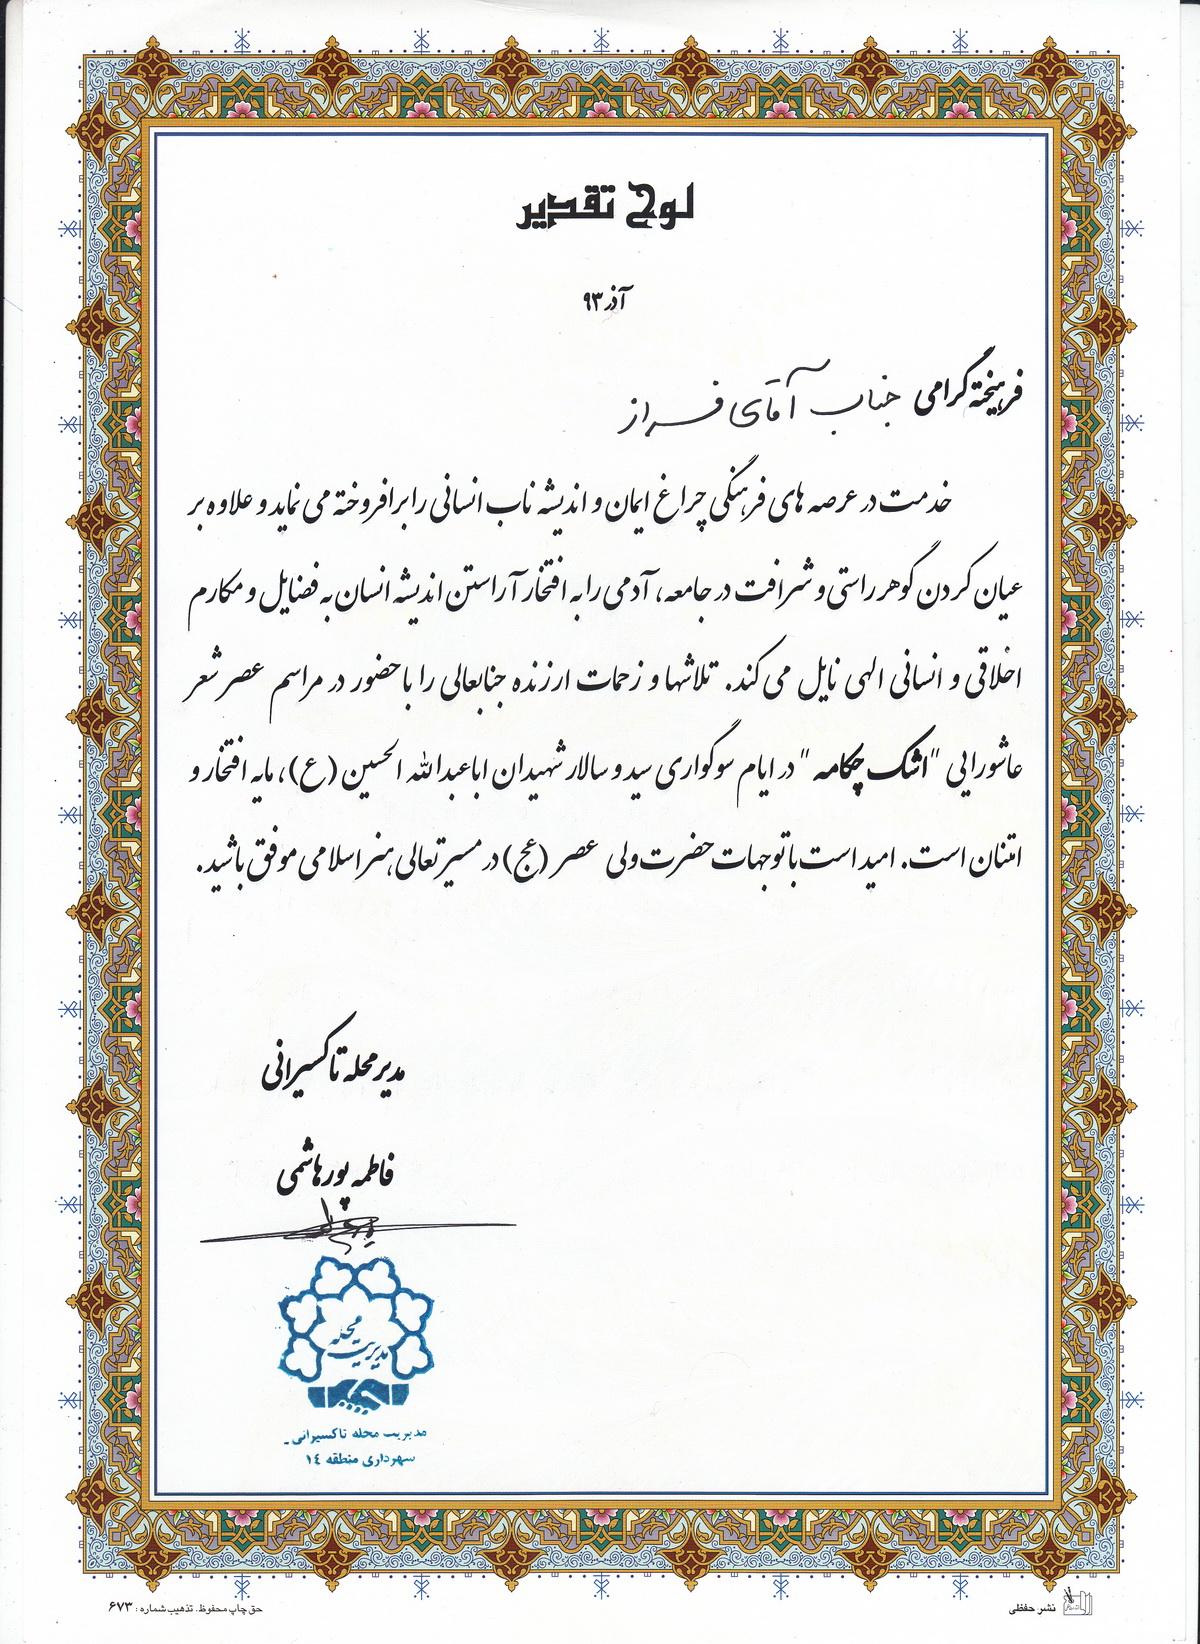 لوح تقدیر
آذر ۹۳
فرهیخته گرامی جناب آقای فراز
خدمت در عرصه های فرهنگی چراغ ایمان و اندیشه ناب انسانی را برافروخته می نماید و علاوه بر
عیان کردن گوهر راستی و شرافت در جامعه، آدمی را به افتخار آراستن اندیشه انسان به فضایل و مکارم
اخلاقی و انسانی الهی نایل می کند. تلاشها و زحمات ارزنده جنابعالی را با حضور در مراسم عصر شعر
عاشورایی "اشک چکامه" در ایام سوگواری سید و سالار شهیدان اباعبدالله الحسین (ع)، مایه افتخار و
امتنان است. امید است با توجهات حضرت ولی عصر (عج) در مسیر تعالی هنر اسلامی موفق باشید.
مدیر محله تاکسیرانی
فاطمه پورهاشمی
مدیریت محله
مدیریت محله تاکسیرانی -
شهرداری منطقه ۱۴
نشر حفظی
حق چاپ محفوظ. تذهیب شماره : ۶۷۳